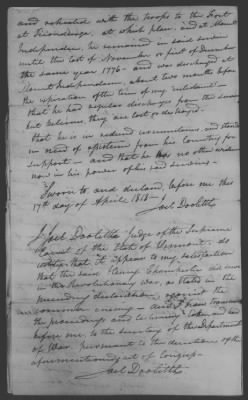 and retreated with the troops to the Fort
at Ticonderoga, at which place, and at Mount
Independence, he remained in said service
until the last of November or first of December
the same year 1776 - and was discharged at
Mount Independence, about two months before
the expiration of the term of my enlistment -
that he had regular discharges from the service
but believes they are lost or destroyed.
that he is in reduced circumstances, and stands
in need of assistance from his Country for
support - and that he has no other evidence
now in his power of his said services -
Sworn to and declared, before me this
17th day of April 1818 -
Joel Doolittle
I, Joel Doolittle Judge of the Supreme
Court of the State of Vermont, do
certify that it appears to my satisfaction
that the said did serve
in the Revolutionary War, as stated in the
preceding declaration, against the
common enemy - and I now transmit
the proceedings and testimony taken and had
before me, to the secretary of the Department
of War, pursuant to the directions of the
aforementioned act of Congress -
Joel Doolittle